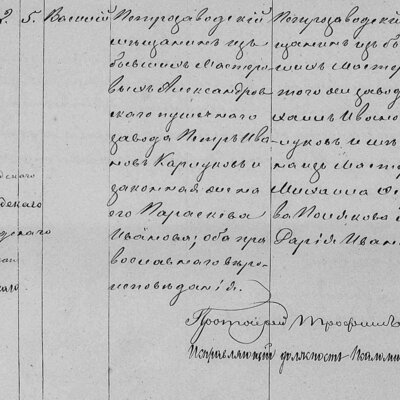 2. 5. Василій
Петрозаводскій
мѣщанинъ изъ
бывшихъ Мастеро
выхъ Александров
скаго пушечнаго
завода Петръ Ива
новъ Карпуковъ и
законная жена
его Параскева
Иванова; оба пра
вославнаго вѣро
исповѣданія.
Петрозаводскій
щанинъ изъ бы
шихъ Мастер
того же завод
ханъ Ивано
пуковъ и
изъ Мастер
Михаила
ва Полякова
Дарія Иван
скаго
скаго
Протоіерей Трофимъ
Исправляющій должность Псаломщ